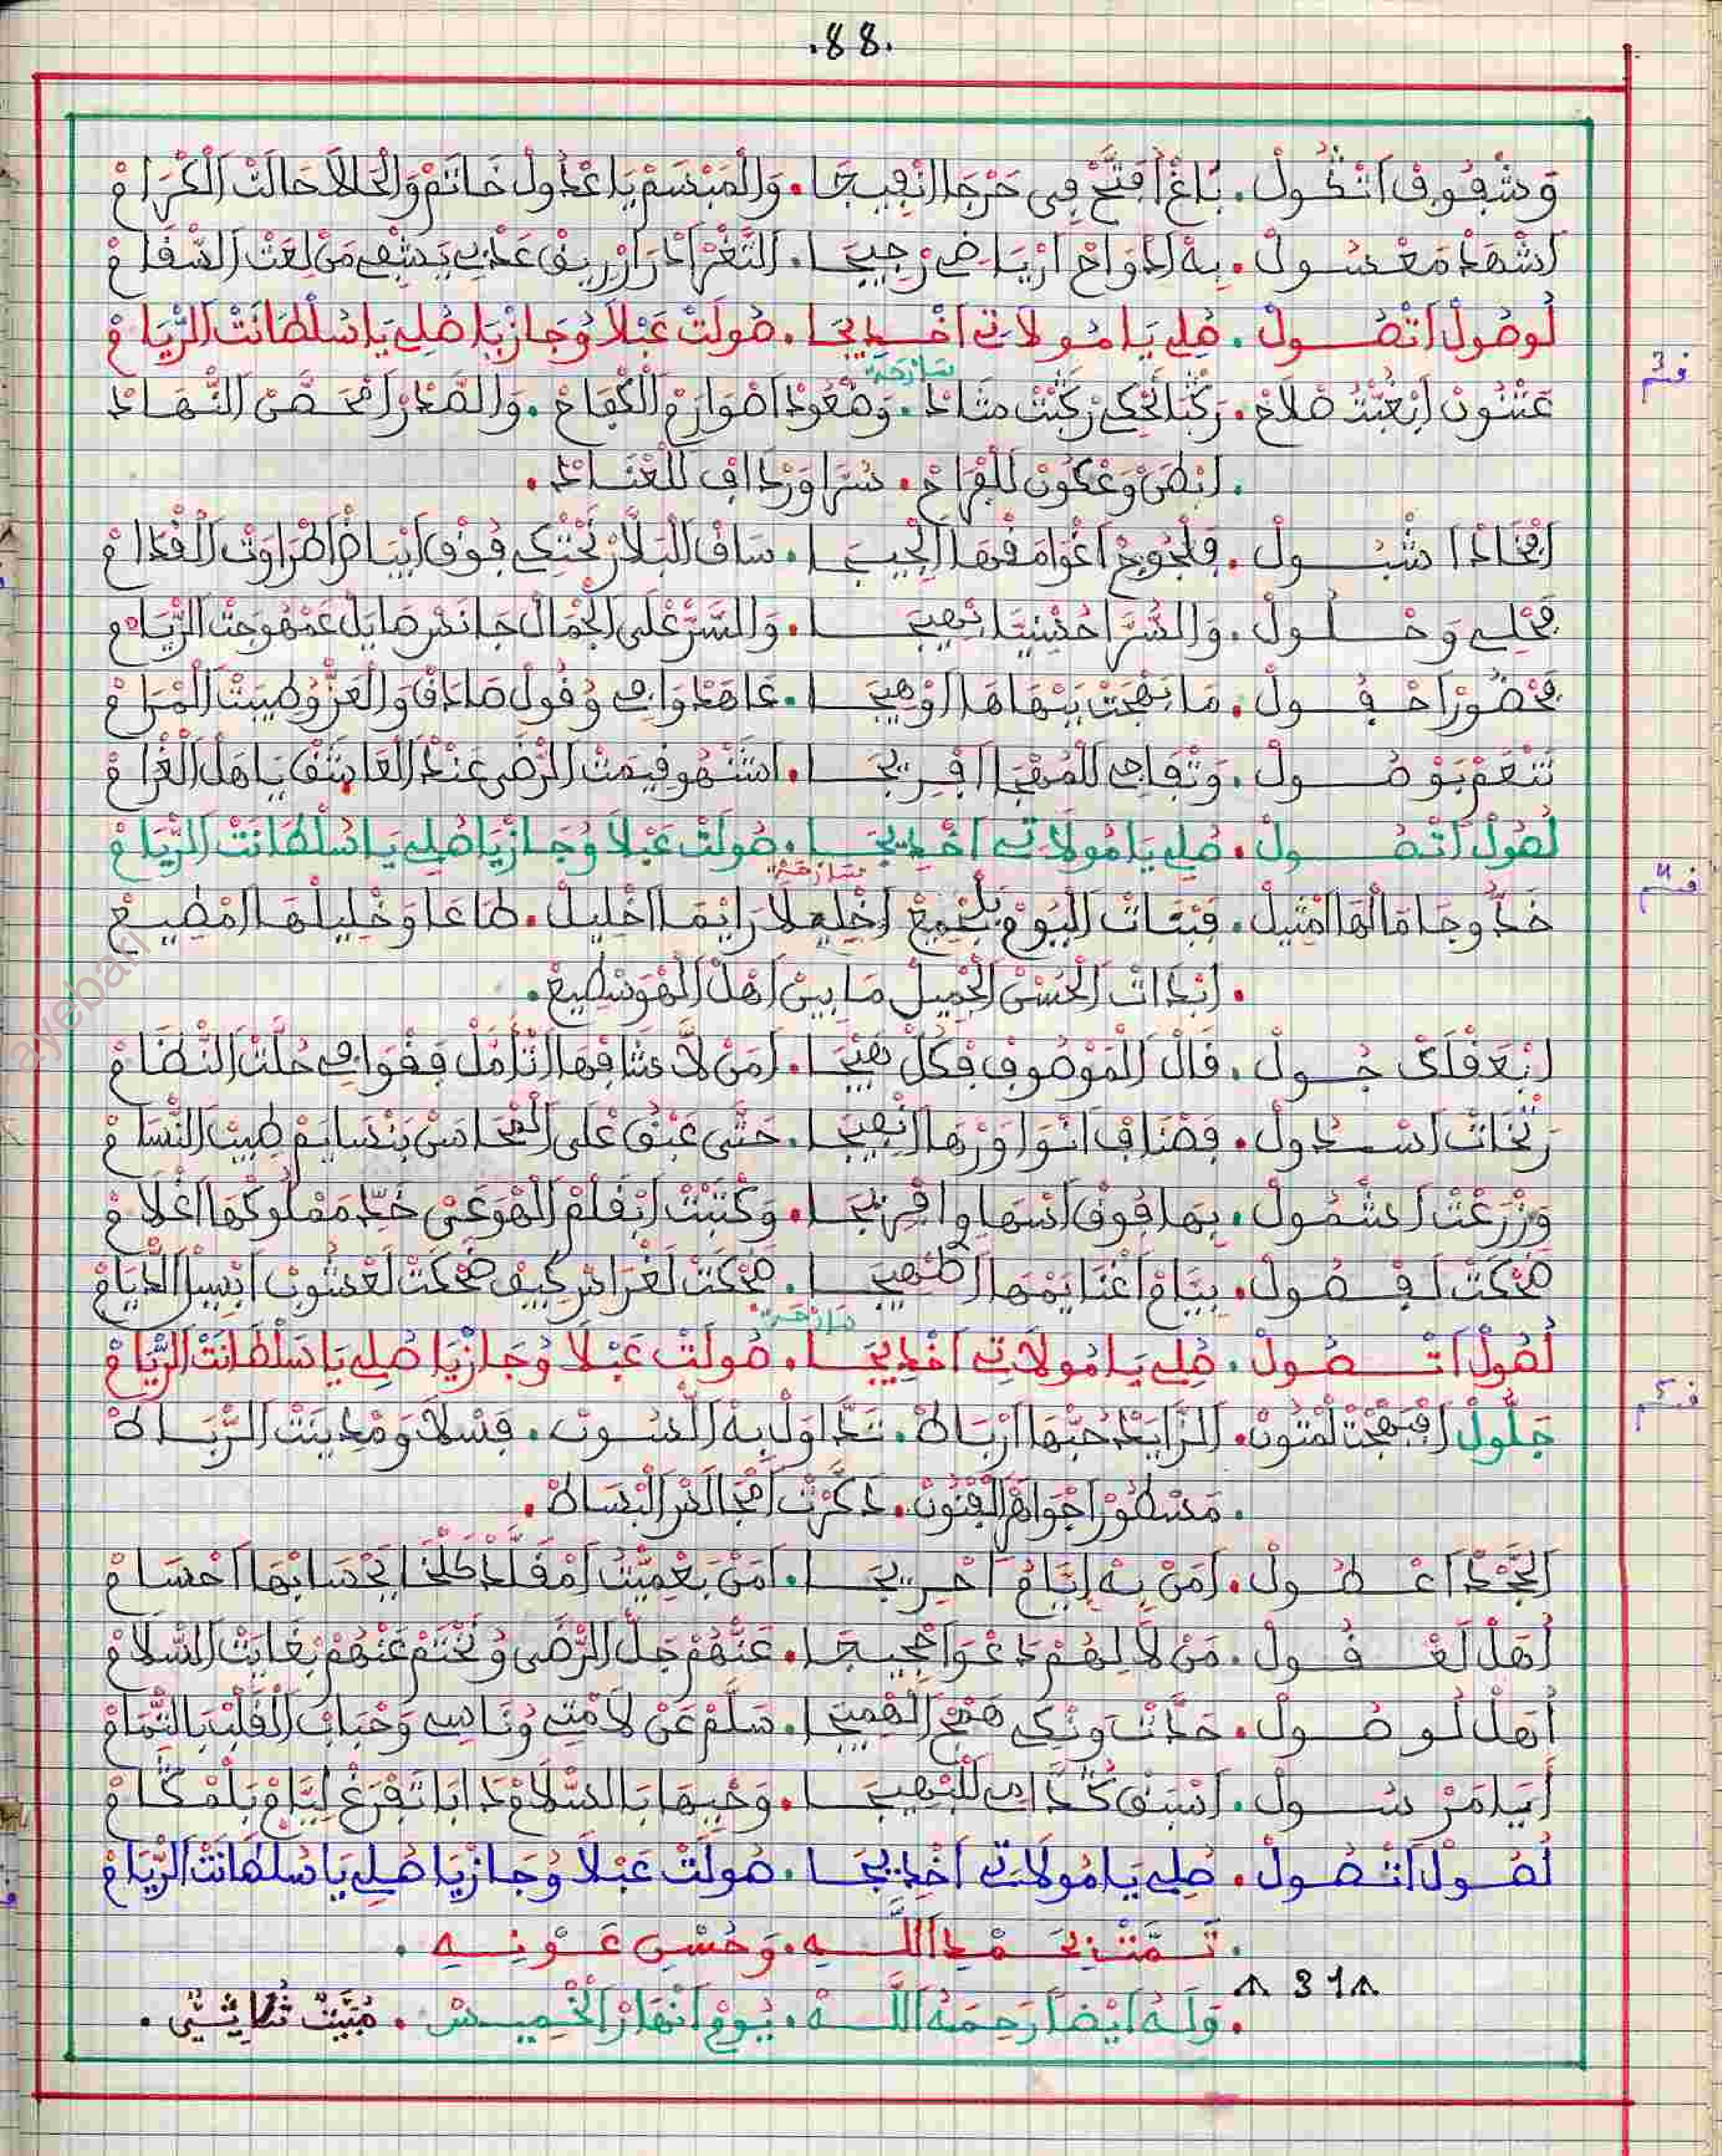 .88.
وَشْفُوفْ اتْكُولْ . بَاغْ افْتَحْ فِي حَرْجَا انْفِيجَا . وَالْمَبْسَمْ يَا عْدُولْ خَاتَمْ وَالْحَالَا حَالَتْ الْكْرَامْ
اشْهَدْ مَعْسُولْ . بِهْ ادْوَاحْ ارْيَاضِي رْجِيجَا . التَّغْرْ ادْرَارْ رِيقْ عَدْبِي يَشْفِي مَنْ لِعَتْ السّْقَامْ
لُوصُولْ اتْصُولْ . صُلِي يَا مُولَاتِي اخْدِيجَا . صُولَتْ عَبْلَا وُجَازْيَا صُلِي يَا سُلْطَانَتْ الرّْيَامْ
سَارْحَة
قسم 3
عَنْنُونْ ابْعُبْتُ صْلَاحْ . رَكْبَا تَحْكِي رَكْبَتْ مْتَادْ . وَصْعُودْ اصْوَارَمْ الْكْفَاحْ . وَالصّْدَرْ امْحَصَّنْ النّْهَادْ
. ابْطَنْ وَعْكُونْ لَلْفْرَاحْ . سُرَّا وَرْدَافْ لَلْعْنَادْ .
افْخَادْ اشْبُولْ . فَلْجُوجْ اعْوَامْ فْهَا لَجِّيجَا . سَاقْ الْبَلَّارْ تَحْتْكِي فُوقْ ابْيَاضْ اطْرَاوَتْ الْقْدَامْ
فَحْلِي وَحْلُولْ . وَالسُّرَّا حْسِينِيَّا بْهِيجَا . وَالسَّرّْ عْلَى الْجْمَالْ جَا نَشْرْ صَايَلْ عَمْهُوجَتْ الرّْيَامْ
فَحْضُورْ احْفُولْ . مَا بَهْجَتْ بَبْهَاهَا الْوْهِيجَا . عَاهَدْ وَافِي وُقُولْ صَادَقْ وَالْعَزّْ وُطِيبَتْ الْمْرَامْ
تَنْعَمْ بَوْصُولْ . وَتْفَاجِي لَلْمُهْجَا افْرِيجَا . اشْنْهُو قِيمَتْ الرّْضَى عَنْدْ الْعَاشَقْ يَاهَلْ الْغْرَامْ
لُصُولْ اتْصُولْ . صُلِي يَا مُولَاتِي اخْدِيجَا . صُولَتْ عَبْلَا وُجَازْيَا صُلِي يَا سُلْطَانَتْ الرّْيَامْ
سَارْحَة
قسم 4
خَدُّوجَا مَا لْهَا امْتِيلْ . فَبْنَاتْ الْيُومْ بَلْجْمِيعْ اخْلِيعْ لَا رَايْمَا اخْلِيلْ . طَاعَا وَخْلِيلْهَا امْطِيعْ
. ابْدَاتْ الْحُسْنْ الْجْمِيلْ مَا بِينْ اهْلْ الْهْوَى شْطِيعْ .
ابْعَقْلَكْ جُولْ . قَالْ الْمَوْصُوفْ فْكُلّْ هِيجَا . امَنْ لَا شَافْهَا اتْأَمَّلْ فَقْوَافِي حُلَّتْ النّْظَامْ
رَتْخَاتْ اسْدُولْ . فَصْنَافْ انْوَاوَرْهَا انْفِيجَا . حَتَّى عَبْقْ عْلَى الْمْحَاسَنْ بَنْسَايَمْ طِيبْ النّْسَامْ
وَزْرَعْتْ اشْمُولْ . بِهَا فُوقْ اسْهَاوِ افْرِيجَا . وَكْتَبْتْ ابْقْلَمْ الْهْوَى عَنْ خَدِّ مَمْلُوكْهَا اعْلَامْ
ضَحْكَتْ لَفْصُولْ . بِيَّامْ اغْنَايَمْهَا الظْهِيجَا . ضَحْكَتْ لَغْرَادْ كِيفْ ضَحْكَتْ لَعْشُوبْ ابْسِيلْ الدّْيَامْ
سَارْحَة
لُصُولْ اتْصُولْ . صُلِي يَا مُولَاتِي اخْدِيجَا . صُولَتْ عَبْلَا وُجَازْيَا صُلِي يَا سُلْطَانَتْ الرّْيَامْ
قسم 5
جَلُّولْ افْبَهْجَتْ لَمْتُونْ . الزَّايَدْ حُبّْهَا ارْبَاطْ . تَدَّاوَلْ بِهْ السُّونْ . فَسْلَا وَمْدِينَتْ الرّْبَاطْ
. مَسْطُورْ اجْوَاهْرْ الْفْنُونْ . دَكْرَتْ امْجَالَسْ الْبْسَاطْ .
الْجَحْدْ اعْطُولْ . امَنْ بِهْ ايَّامُ احْرِيجَا . امَنْ بَعْمِيتُ امْقَلَّدْ كَلْخَا يَحْسَابْهَا احْسَامْ
اهْلْ لَعْقُولْ . مَنْ لَا لِهُمْ دَعْوَا حْجِيجَا . عَنْهُمْ جَلّْ الرّْضَى وُنَخْتَمْ عَنْهُمْ بَغَايَتْ السّْلَامْ
اهْلْ لُوصُولْ . حَدَّتْ وَنْكِي هَمْجْ الْهْمِيجَا . سَلَّمْ عَنْ لَامْتِي وُنَاسِي وَحْبَابْ الْقَلْبْ بَالتّْمَامْ
ايَا مَرْسُولْ . اسْبَقْ كُدَّامِي لَلْبْهِيجَا . وَحْيِيهَا بَالسّْلَامْ دَابَا تَفْرَغْ لِيَّامْ بَلْمْكَامْ
لُصُولْ اتْصُولْ . صُلِي يَا مُولَاتِي اخْدِيجَا . صُولَتْ عَبْلَا وُجَازْيَا صُلِي يَا سُلْطَانَتْ الرّْيَامْ
. تَمَّتْ بِحَمْدِ اللَّهِ . وَحُسْنِ عَوْنِهِ .
31
. وَلَهُ ايْضاً رَحِمَهُ اللَّهْ . يُومْ انْهَارْ الْخْمِيسْ . مُبَيَّتْ ثُلَاثِي .